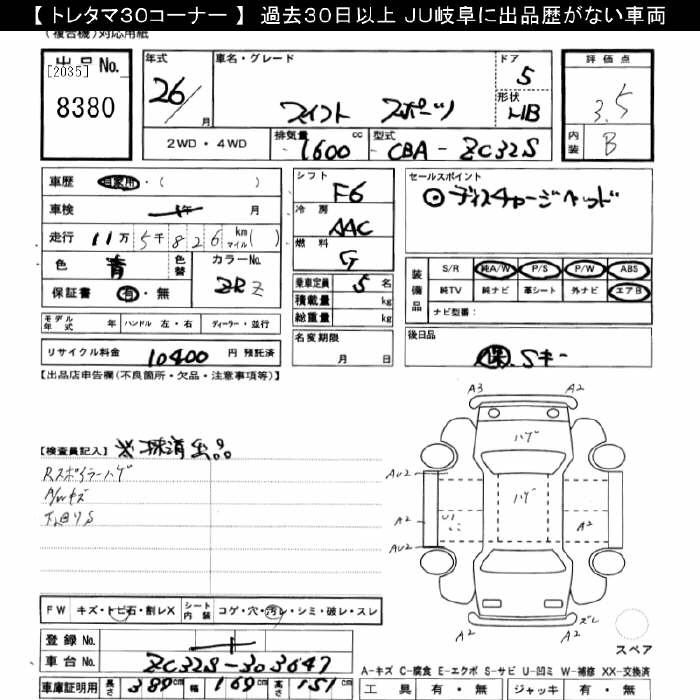 【 トレタマ30コーナー 】 過去30日以上 JU岐阜に出品歴がない車両
(複合機)対応用紙
出品 No.
[2035]
8380
年式
26/
月
車名・グレード
スイフト スポーツ
ドア
5
形状
HB
評価点
3.5
内装
B
2WD・4WD
排気量
1600
cc
型式
CBA - ZC32S
車歴
自家用・( )
車検
年 月
走行
11万 5千 8 2 6 km
マイル( )
色
青
色替
カラーNo.
ZRZ
保証書
有・無
シフト
F6
冷房
AAC
燃料
G
乗車定員 5 名
積載量 kg
総重量 kg
セールスポイント
◎ディスチャージヘッド
装備品
S/R 純A/W P/S P/W ABS
純TV 純ナビ 革シート 外ナビ エアB
ナビ型番:
モデル年式 年 ハンドル 左・右 ディーラー・並行
リサイクル料金 10400 円 預託済
名変期限
月 日
後日品
保 Sキー
【出品店申告欄(不良箇所・欠品・注意事項等)】
【検査員記入】
Rスポイラーハゲ
A/Wキズ
下回りS
A3
A2
ハゲ
AU2
ハゲ
A2
U1
A2
AU2
A2
A2
ズレ
スペア
FW キズ・トビ石・割レX
シート内装 コゲ・穴・汚レ・シミ・破レ・スレ
登録 No.
車台 No. ZC32S-303647
車庫証明用 長さ 389cm 幅 169cm 高さ 151cm
A-キズ C-腐食 E-エクボ S-サビ U-凹ミ W-補修 XX-交換済
工具 有・無 ジャッキ 有・無